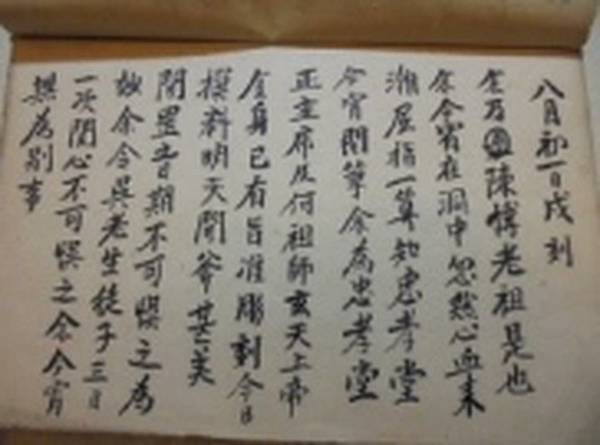 八月初一日戌刻
余乃陳摶老祖是也
余今宵在洞中忽然心血来
潮屈指一算知忠孝堂
今宵開筆余為忠孝堂
正主席及何祖師玄天上帝
金身已有旨准彫刻今日
擇料明天開斧甚美
開置音期不可悞之為
妙余今與老生徒子三日
一次開心不可悞之余今宵
無為別事